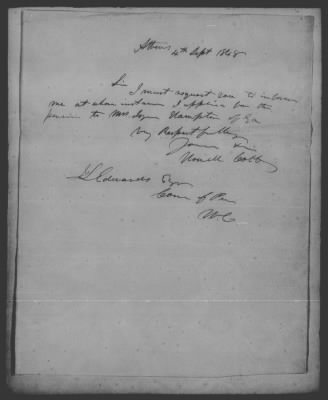 Athens 4th Sept 1848
Sir I must request you to inform
me at whose instance I applied for the
pension to Mrs Hampton of Ga
Very Respectfully
Yours &c
Howell Cobb
J L Edwards Esqr
Com of Pen
W.C